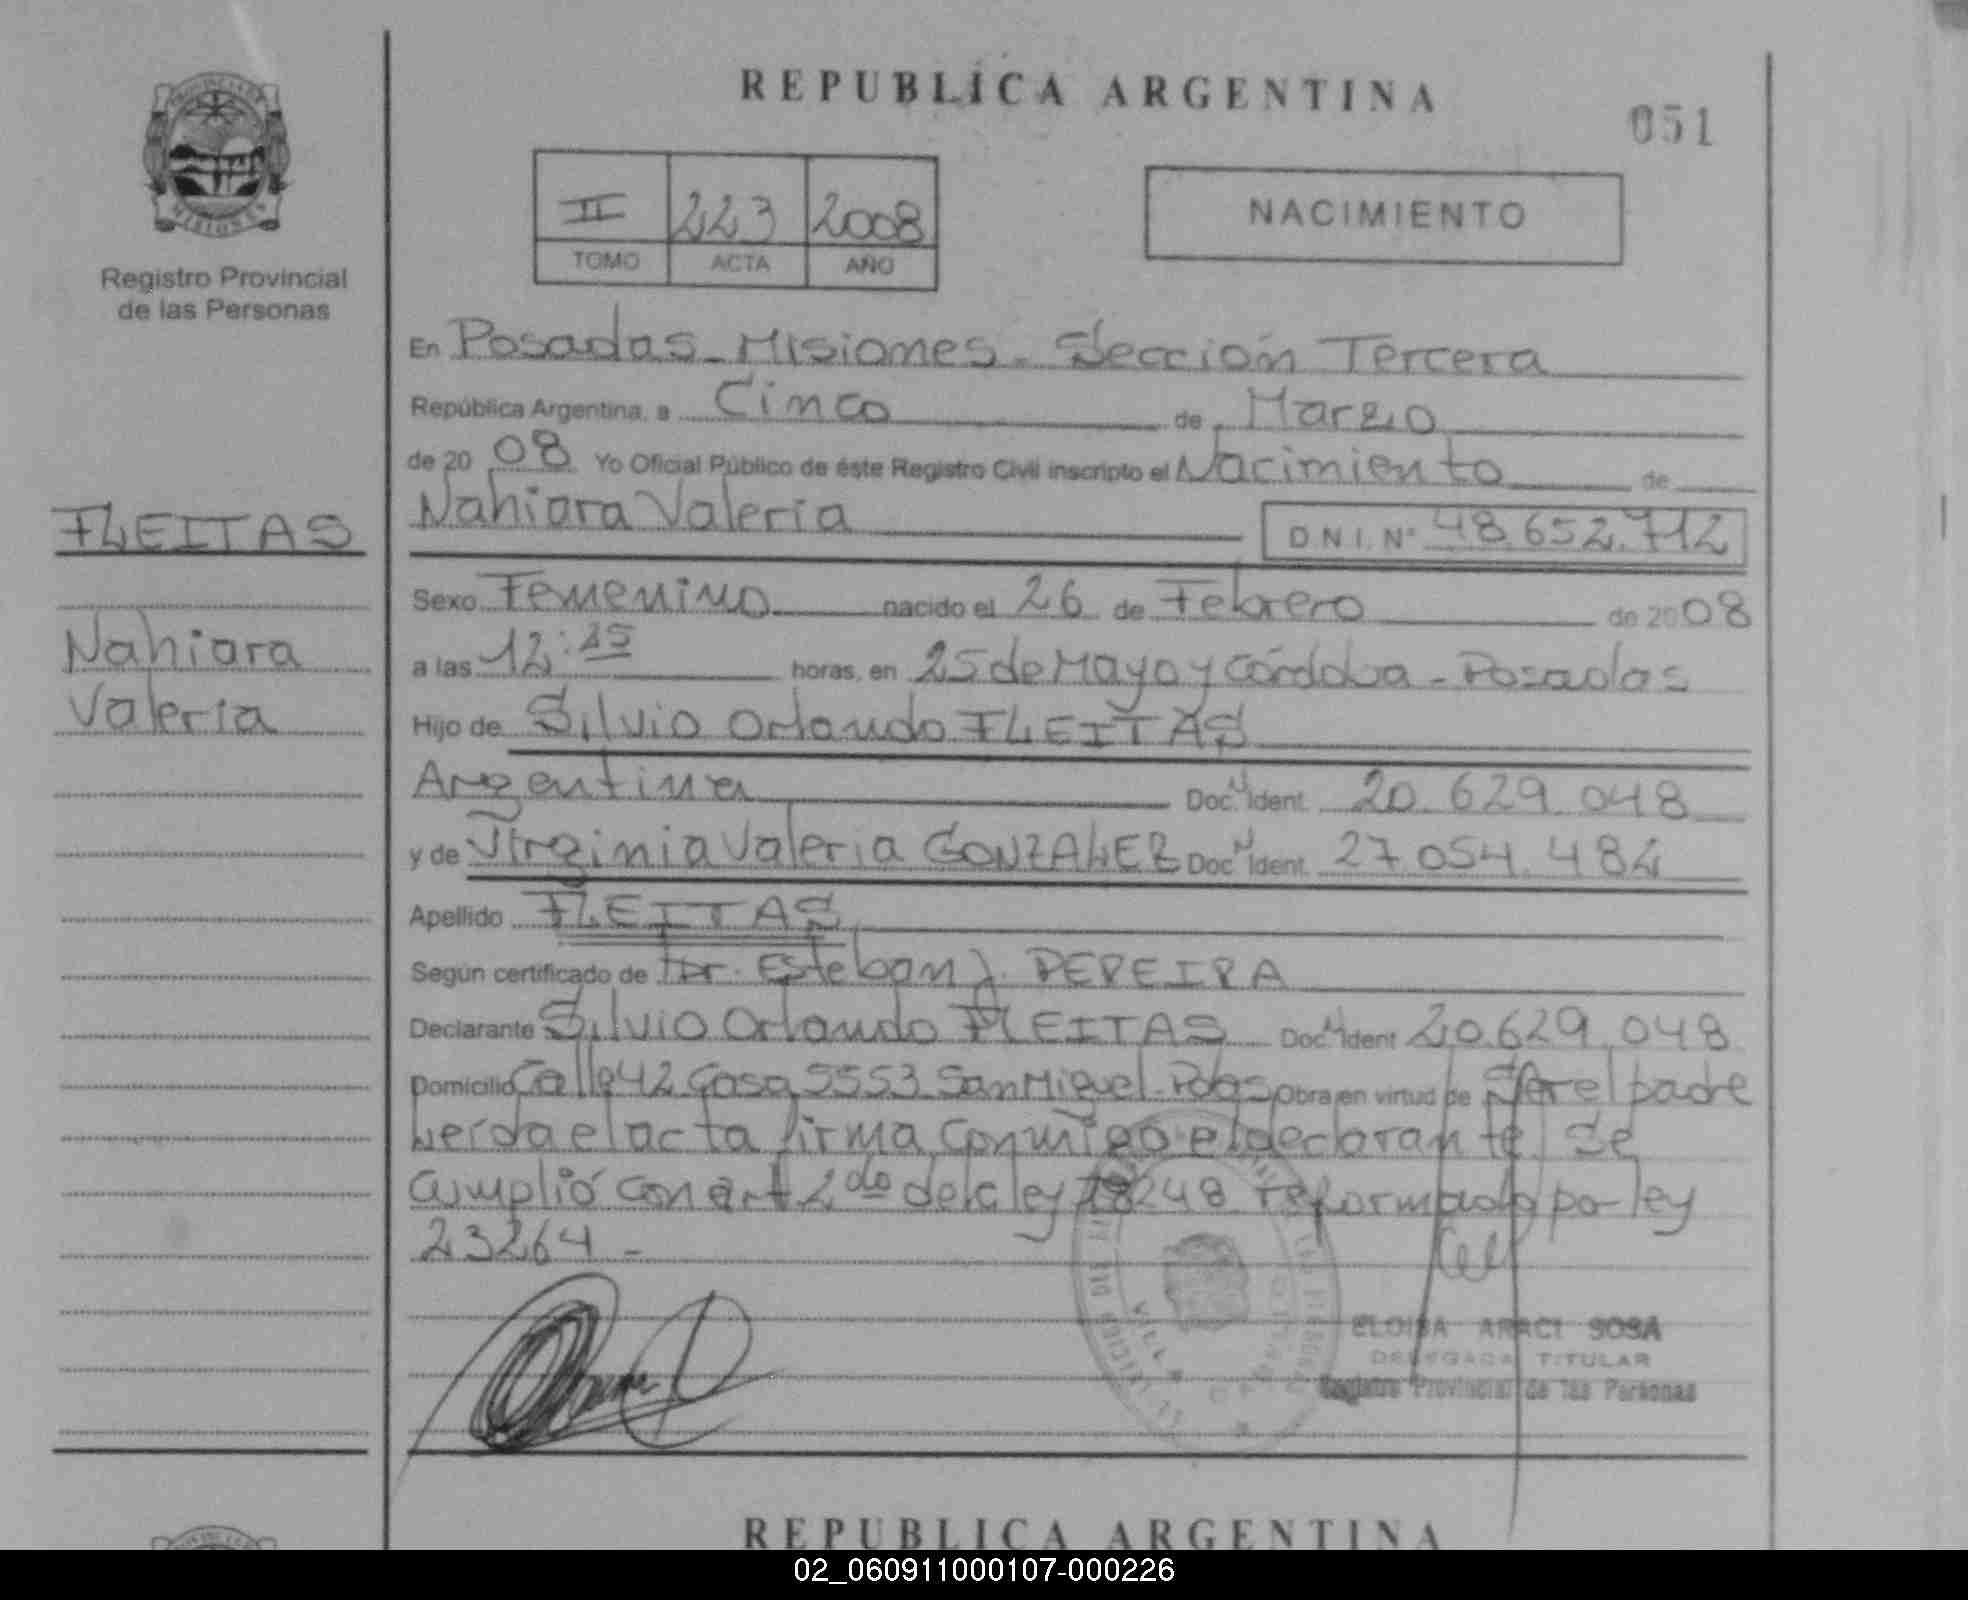 REPUBLICA ARGENTINA
051
II 223 2008
TOMO ACTA AÑO
NACIMIENTO
Registro Provincial
de las Personas
En Posadas - Misiones - Sección Tercera
República Argentina, a Cinco de Marzo
de 2008 Yo Oficial Público de éste Registro Civil inscripto el Nacimiento de
Nahiara Valeria D.N.I. Nº 48.652.712
FLEITAS
Nahiara
Valeria
Sexo Femenino nacido el 26 de Febrero de 2008
a las 12:25 horas, en 25 de Mayo y Córdoba - Posadas
Hijo de Silvio Orlando FLEITAS
Argentina Doc. Ident. 20.629.048
y de Virginia Valeria GONZALEZ Doc. Ident. 27.054.484
Apellido FLEITAS
Según certificado de Dr. Esteban J. PEREIRA
Declarante Silvio Orlando FLEITAS Doc. Ident 20.629.048
Domicilio Calle 42 Casa 5553 San Miguel - Pdas Obra en virtud de Ser el padre
Leída el acta firma conmigo el declarante Se
cumplió con art 2do de la ley 18248 reformado por ley
23264 -
ELOISA ARACI SOSA
DELEGADA TITULAR
Registro Provincial de las Personas
REPUBLICA ARGENTINA
02_060911000107-000226